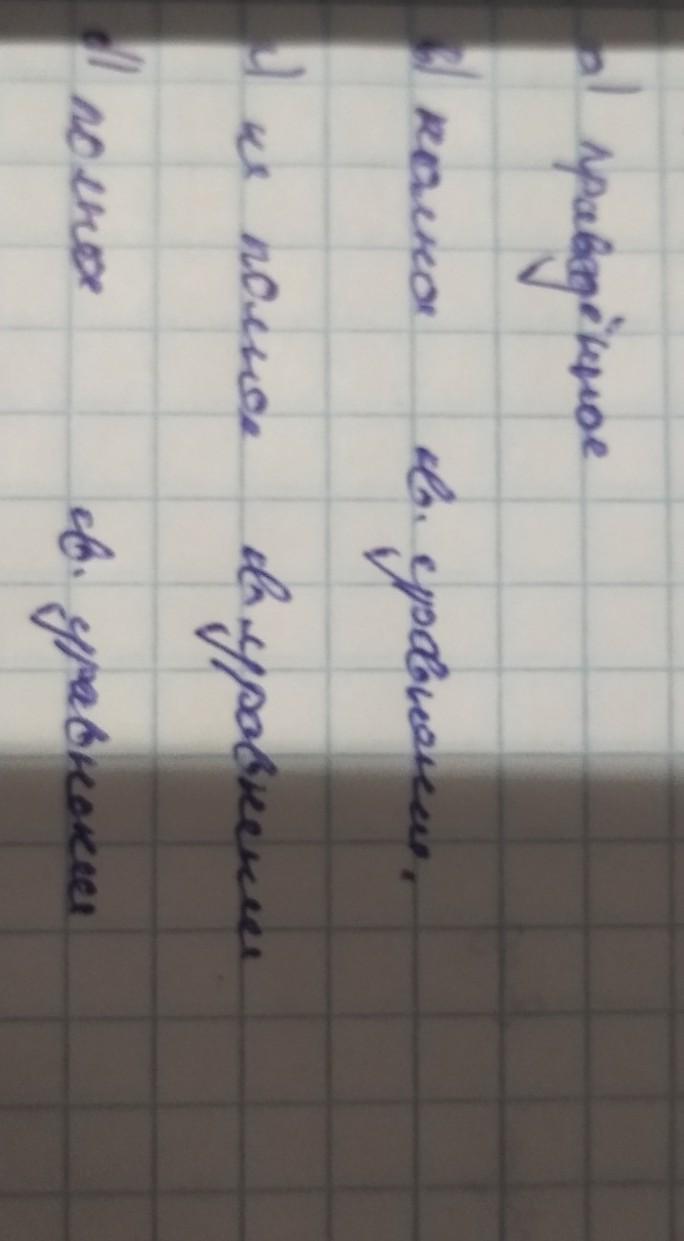 а) праведённое
в) полное кв. уравнение.
г) не полное кв. уравнение
д) полное кв. уравнение